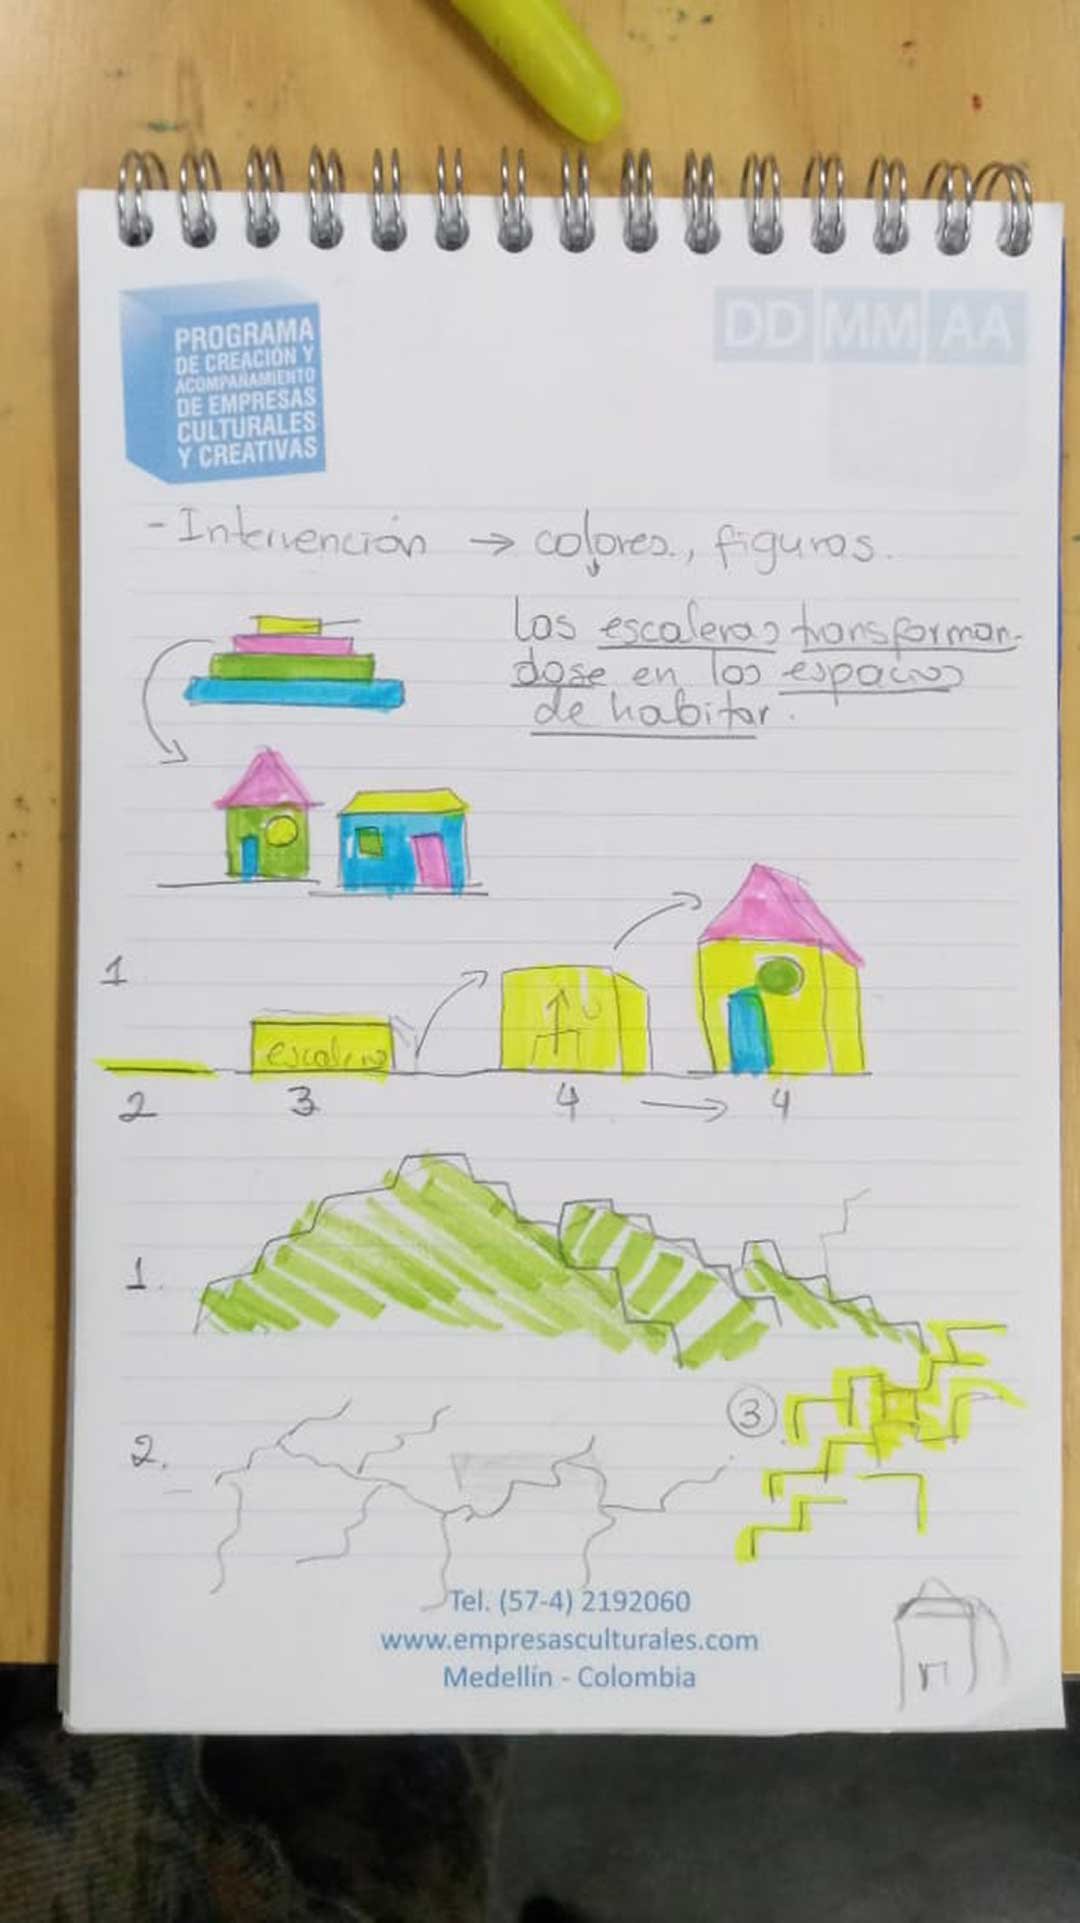 PROGRAMA
DE CREACIÓN Y
ACOMPAÑAMIENTO
DE EMPRESAS
CULTURALES
Y CREATIVAS
DD MM AA
- Intervención → colores, figuras.
las escaleras transforman-
dose en los espacios
de habitar.
1
escalera
2 3 4 → 4
1.
3
2.
Tel. (57-4) 2192060
www.empresasculturales.com
Medellín - Colombia